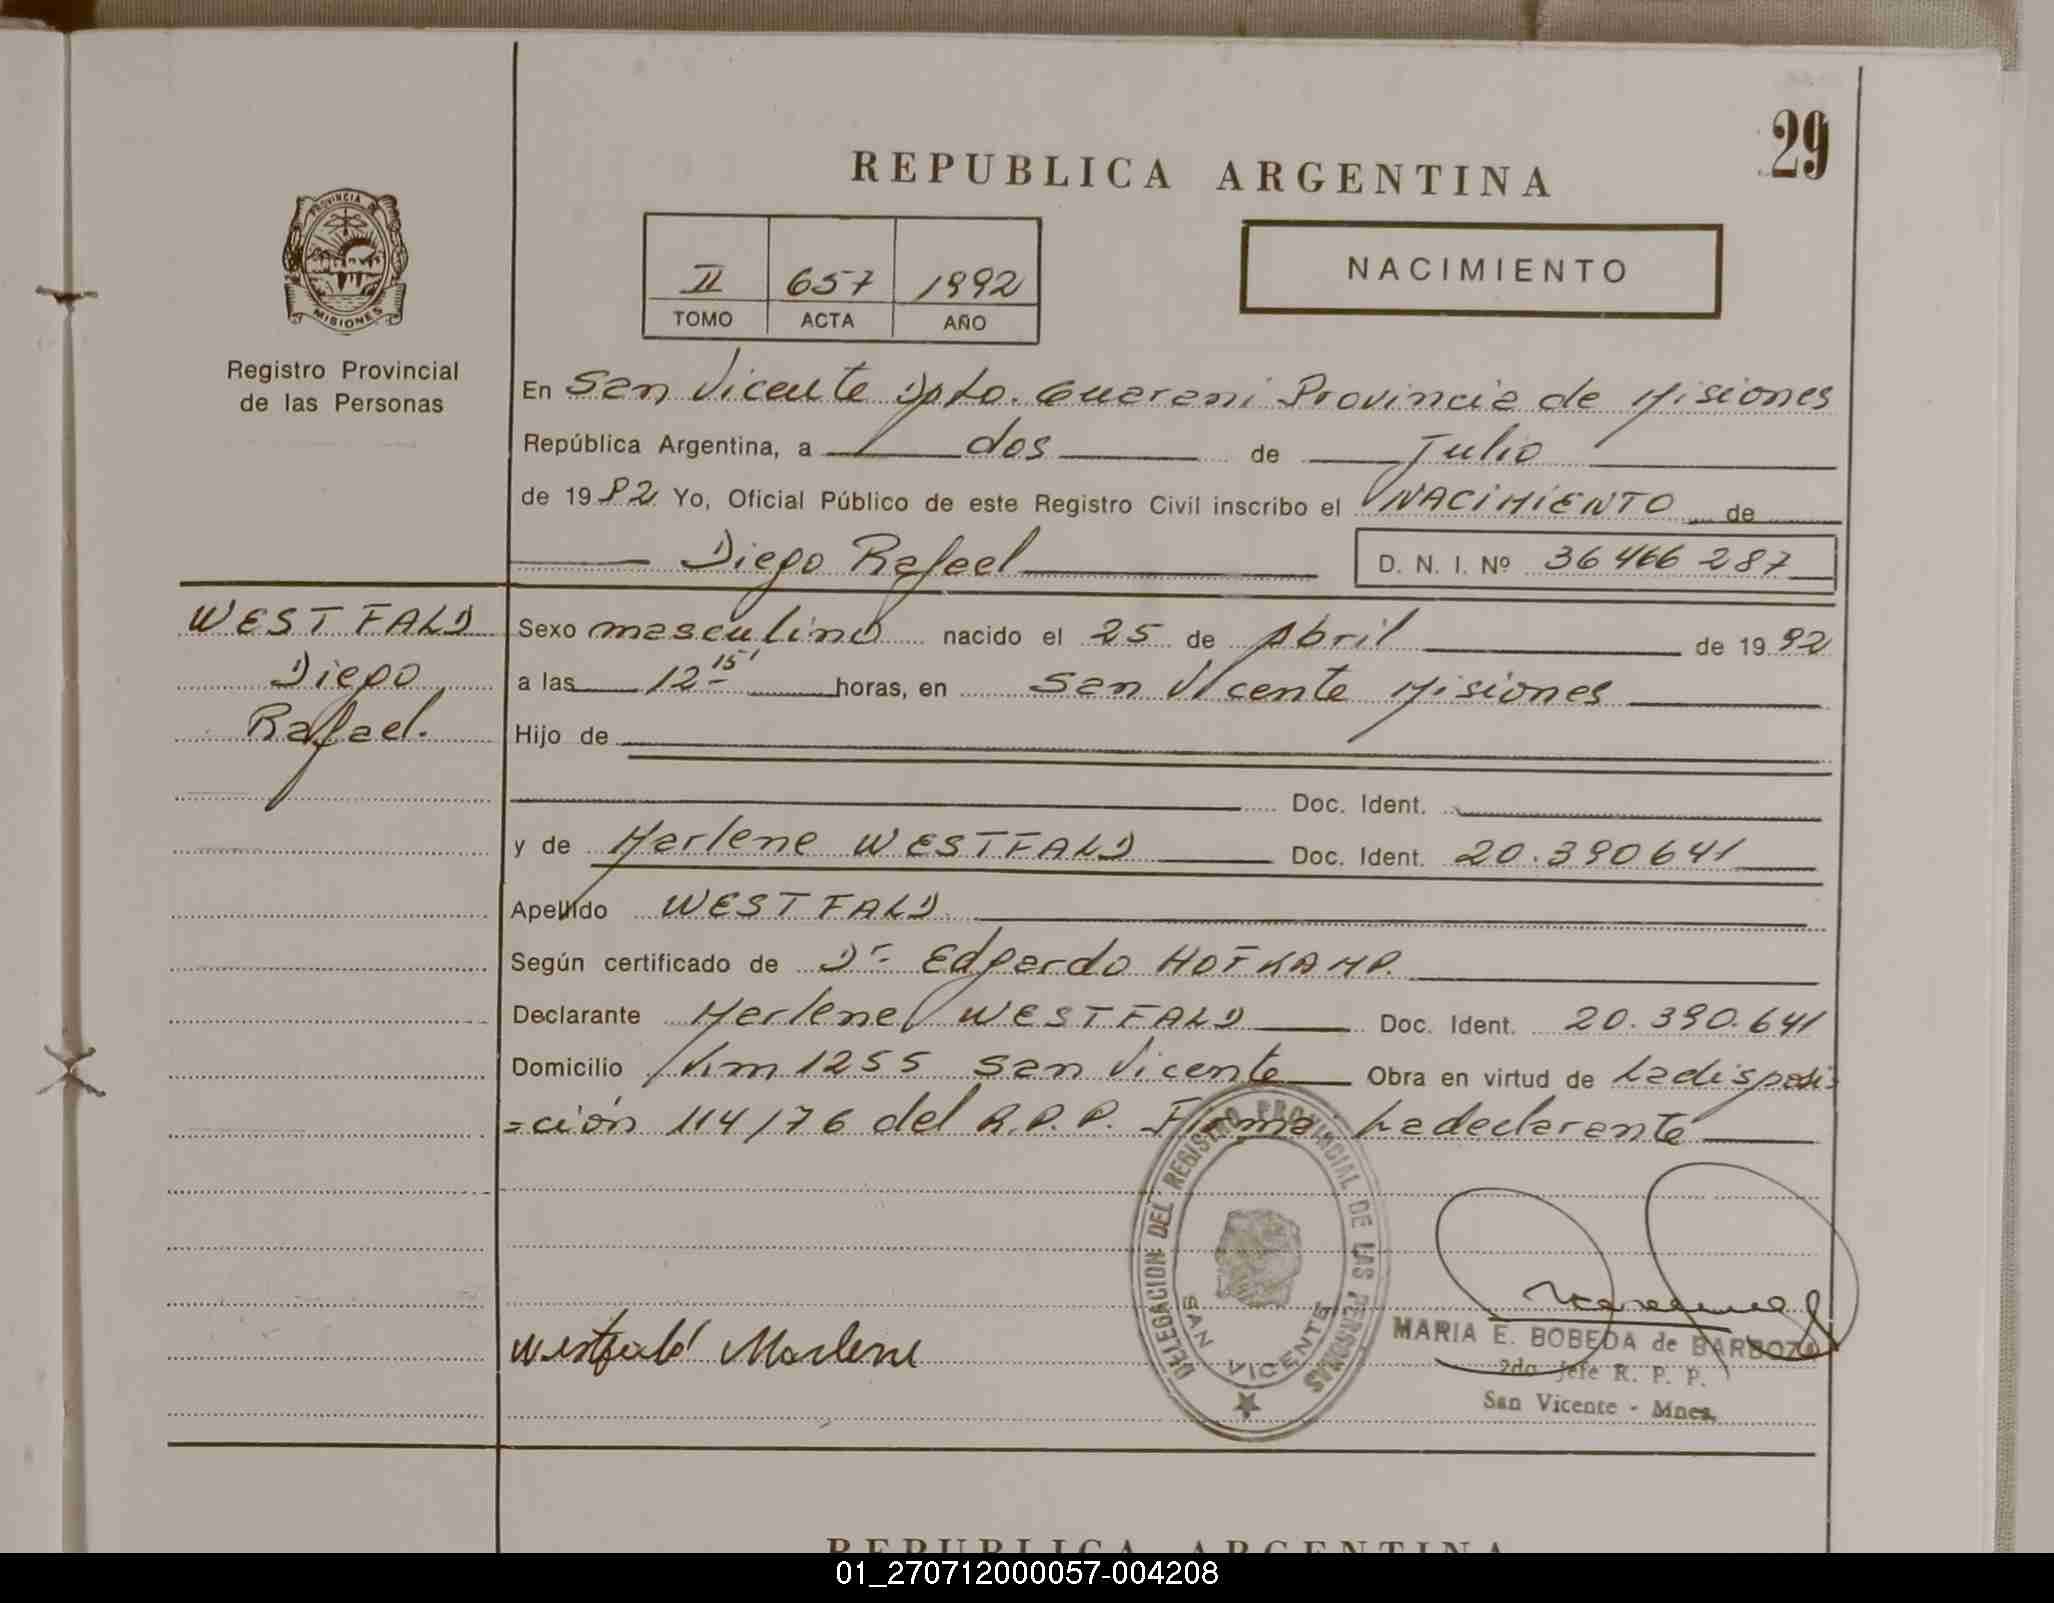 29
REPUBLICA ARGENTINA
PROVINCIA DE
MISIONES
Registro Provincial
de las Personas
II 657 1992
TOMO ACTA AÑO
NACIMIENTO
En San Vicente Dpto. Guarani Provincia de Misiones
República Argentina, a dos de Julio
de 1992 Yo, Oficial Público de este Registro Civil inscribo el NACIMIENTO de
Diego Rafael D. N. I. Nº 36466287
WESTFALD
Diego
Rafael.
Sexo masculino nacido el 25 de Abril de 1992
a las 12 15' horas, en San Vicente Misiones
Hijo de
Doc. Ident.
y de Marlene WESTFALD Doc. Ident. 20.390641
Apellido WESTFALD
Según certificado de Dr Edgardo HOFKAMP.
Declarante Marlene WESTFALD Doc. Ident. 20.390.641
Domicilio Km 1255 San Vicente Obra en virtud de La disposi
=ción 114/76 del R.P.P. Firma La declarante
DELEGACION DEL REGISTRO PROVINCIAL DE LAS PERSONAS
SAN VICENTE
Westfald Marlene
MARIA E. BOBEDA de BARBOZA
2do Jefe R. P. P.
San Vicente - Mnes.
REPUBLICA ARGENTINA
01_270712000057-004208